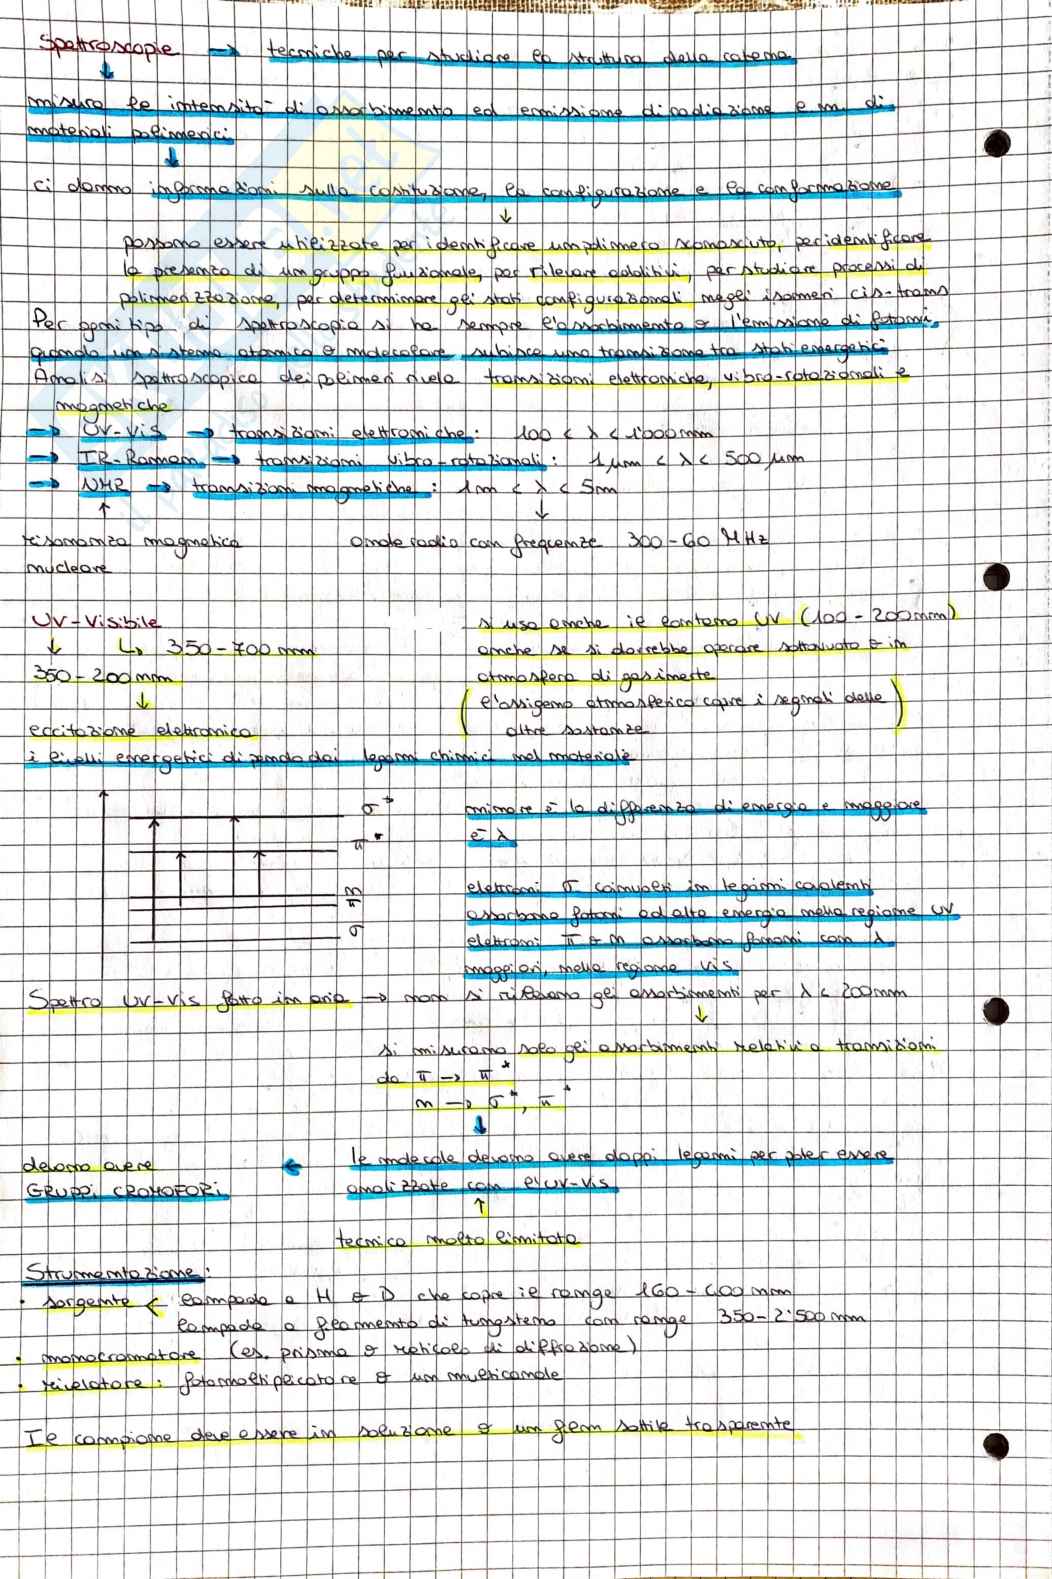 Spettroscopie → tecniche per studiare la struttura della catena
↓
misura le intensità di assorbimento ed emissione di radiazione e.m. di
materiali polimerici
↓
ci danno informazioni sulla costituzione, la configurazione e la conformazione
↓
possono essere utilizzate per identificare un polimero sconosciuto, per identificare
la presenza di un gruppo funzionale, per rilevare additivi, per studiare processi di
polimerizzazione, per determinare gli stati configurazionali negli isomeri cis-trans
Per ogni tipo di spettroscopia si ha sempre l'assorbimento o l'emissione di fotoni,
quando un sistema atomico o molecolare subisce una transizione tra stati energetici
Analisi spettroscopica dei polimeri rivela transizioni elettroniche, vibro-rotazionali e
magnetiche
→ UV-Vis → transizioni elettroniche: 100 < λ < 1'000 nm
→ IR-Raman → transizioni vibro-rotazionali: 1 μm < λ < 500 μm
→ NMR → transizioni magnetiche: 1m < λ < 5m
↑ ↓
risonanza magnetica onde radio con frequenze 300-60 MHz
nucleare
UV-Visibile
↓ ↳ 350-700 nm
350-200 nm
↓
eccitazione elettronica
s usa anche il lontano UV (100-200 nm)
anche se si dovrebbe operare sottovuoto o in
atmosfera di gas inerte
(l'ossigeno atmosferico copre i segnali delle
altre sostanze)
i livelli energetici dipendo dai legami chimici nel materiale
σ*
π*
n
π
σ
minore è la differenza di energia e maggiore
è λ
elettroni σ coinvolti in legami covalenti
assorbono fotoni ad alta energia nella regione UV
elettroni π e n assorbono fononi con λ
maggiori, nella regione Vis
Spettro UV-Vis fatto in aria → non si rilevano gli assorbimenti per λ < 200 nm
↓
si misurano solo gli assorbimenti relativi a transizioni
da π → π*
n → σ*, π*
↓
devono avere ← le molecole devono avere doppi legami per poter essere
GRUPPI CROMOFORI analizzate con l'UV-Vis
↑
tecnica molto limitata
Strumentazione:
• sorgente < lampada a H e D che copre il range 160-400 nm
lampada a filamento di tungsteno con range 350-2'500 nm
• monocromatore (es. prisma o reticolo di diffrazione)
• rivelatore: fotomoltiplicatore o un multicanale
Il campione deve essere in soluzione o un film sottile trasparente